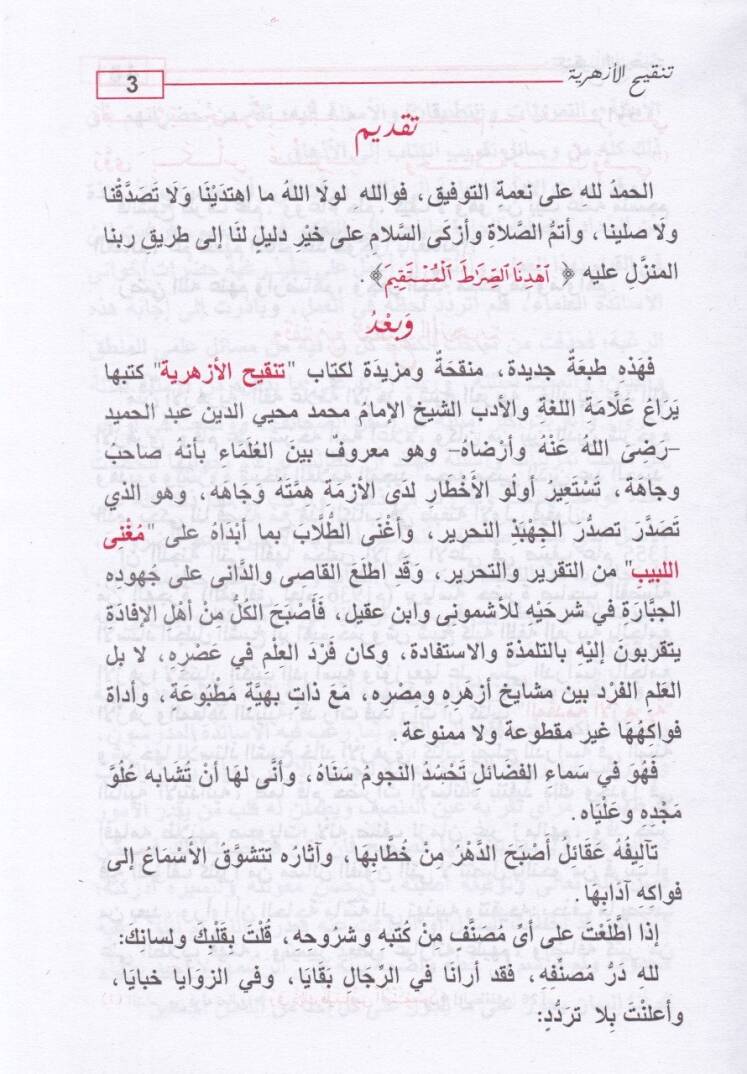 تنقيح الأزهرية
3
تقديم
الحمدُ لله على نعمة التوفيق، فوالله لولَا اللهُ ما اهتدَيْنَا وَلَا تَصَدَّقْنا
ولا صلينا، وأتمُّ الصَّلَاةِ وأزكَى السَّلامِ على خَيْرِ دليلٍ لنَا إلى طَرِيقِ ربنا
المنزَّلِ عليه ﴿ ٱهْدِنَا ٱلصِّرَٰطَ ٱلْمُسْتَقِيمَ﴾ .
وَبَعْدُ
فهَذِه طبعَةٌ جديدةٌ، منقحَةٌ ومزيدَة لكتاب "تنقيح الأزهرية" كتبها
يَرَاعُ عَلَّامَةِ اللغَةِ والأدب الشَّيخ الإمَامُ محمد محيي الدين عبد الحميد
–رَضىَ الله عَنْهُ وأرْضَاه– وهو معروفٌ بينَ العُلَمَاءِ بأنهُ صَاحبُ
وجاهَة، تَسْتَعيرُ أولُو الأَخْطار لدَى الأزمَة همَّتهُ وَجَاهَه، وهو الذي
تَصَدَّرَ تصدُّرَ الجهْبَذ النحرير، وأغْنَى الطُّلَّابَ بما أبْدَاهُ على "مُغْنِى
اللبيبِ" من التقرير والتحرير، وَقد اطلعَ القاصى والدَّانى على جُهودِه
الجبَّارَة في شرحَيْه للأشمونى وابن عقيل، فَأصْبَحَ الكل منْ أهْل الإفادَة
يتقربون إليْه بالتلمذَة والاستفادَة، وكان فَرْدَ العِلْم في عَصْرِه، لا بل
العَلَم الفرْد بين مشايخ أزهَرِه ومصْره، مَعَ ذات بهيَّة مَطْبُوعَة، وأداة
فواكهُهَا غيرُ مقطوعة ولا ممنوعة.
فَهُوَ في سَماءِ الفضَائل تحْسُدُ النجُومُ سَنَاهُ، وأنَّى لها أنْ تشَابه عُلُوَّ
مَجْدِهِ وعَلْيَاه.
تآليفُهُ عَقَائل أصْبَحَ الدَّهْرُ مِنْ خُطَّابِهَا، وآثارُه تتشوَّقُ الأسْمَاعُ إلى
فواكِهِ آدَابِهَا.
إذا اطلعْتَ على أىِّ مُصَنَّفٍ مِنْ كتبهِ وشُروحِهِ، قُلْتَ بِقلبِكَ ولسانكَ:
للهِ دَرُّ مصَنِّفِهِ، فقد أرانَا في الرِّجَالِ بَقَايَا، وفي الزوايَا خبايَا،
وأعلنْتَ بِلا تردُّدٍ: